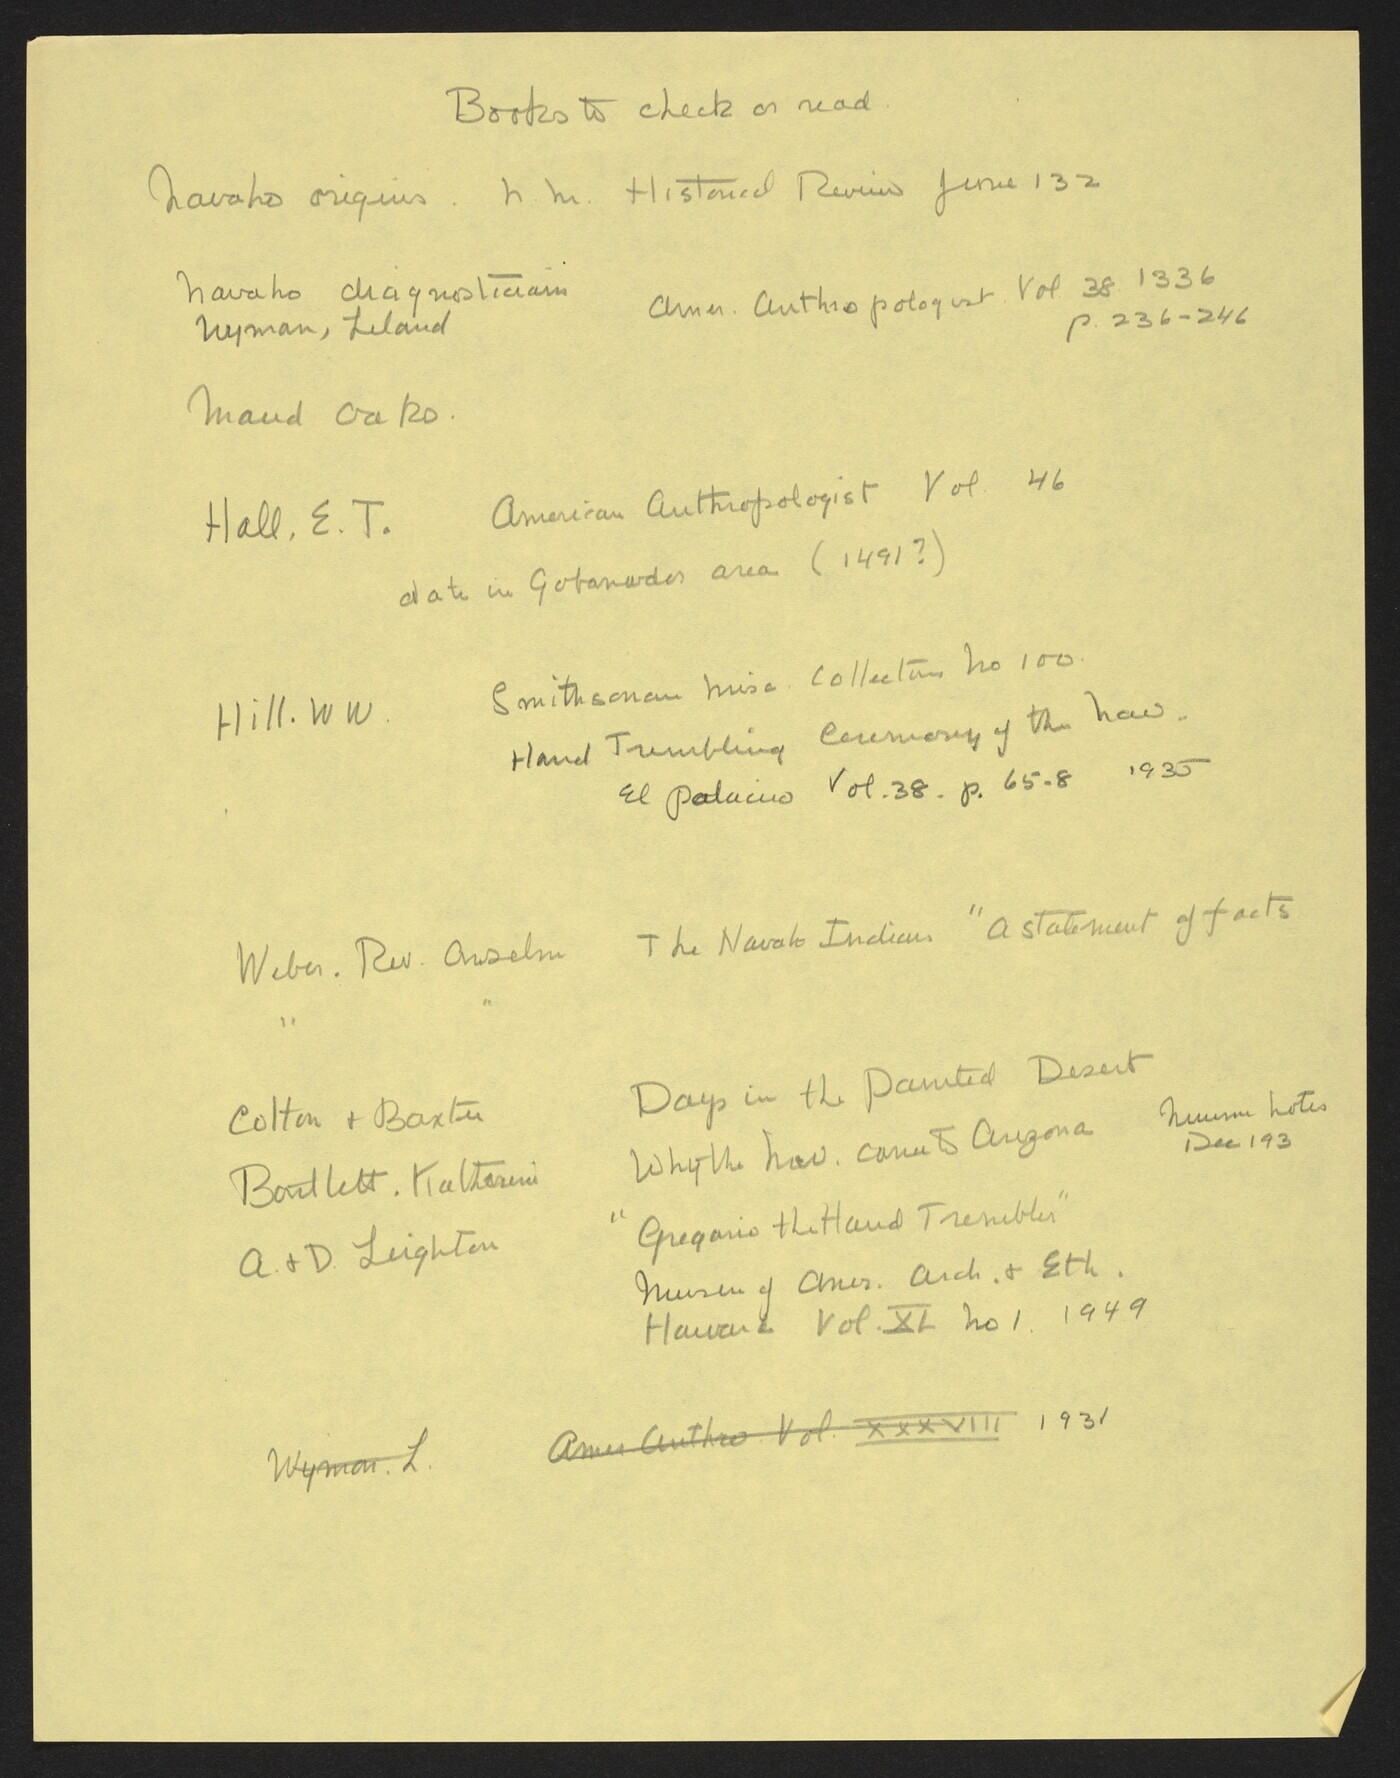 Books to check or read.
Navaho origins. N. M. Historical Review June 132
Navaho diagnosticians Amer. Anthropologist Vol 38 1336
Wyman, Leland p. 236-246
Maud Oakes.
Hall, E. T. American Anthropologist Vol. 46
date in Gobanador area (1491?)
Hill. W W. Smithsonan Misc. Collections No 100.
Hand Trembling Ceremony of the Nav.
El Palacio Vol. 38. p. 65-8 1935
Weber. Rev. Anselm The Navaho Indians "A statement of facts
" "
Colton & Baxter Days in the Painted Desert
Bartlett. Katharine Why the Nav. came to Arizona Museum Notes
Dec 193
A. & D. Leighton "Gregorio the Hand Trembler"
Museu of Amer. Arch. & Eth.
Harvard Vol. XL No 1. 1949
Wyman. L. Amer Anthro. Vol. XXXVIII 1931